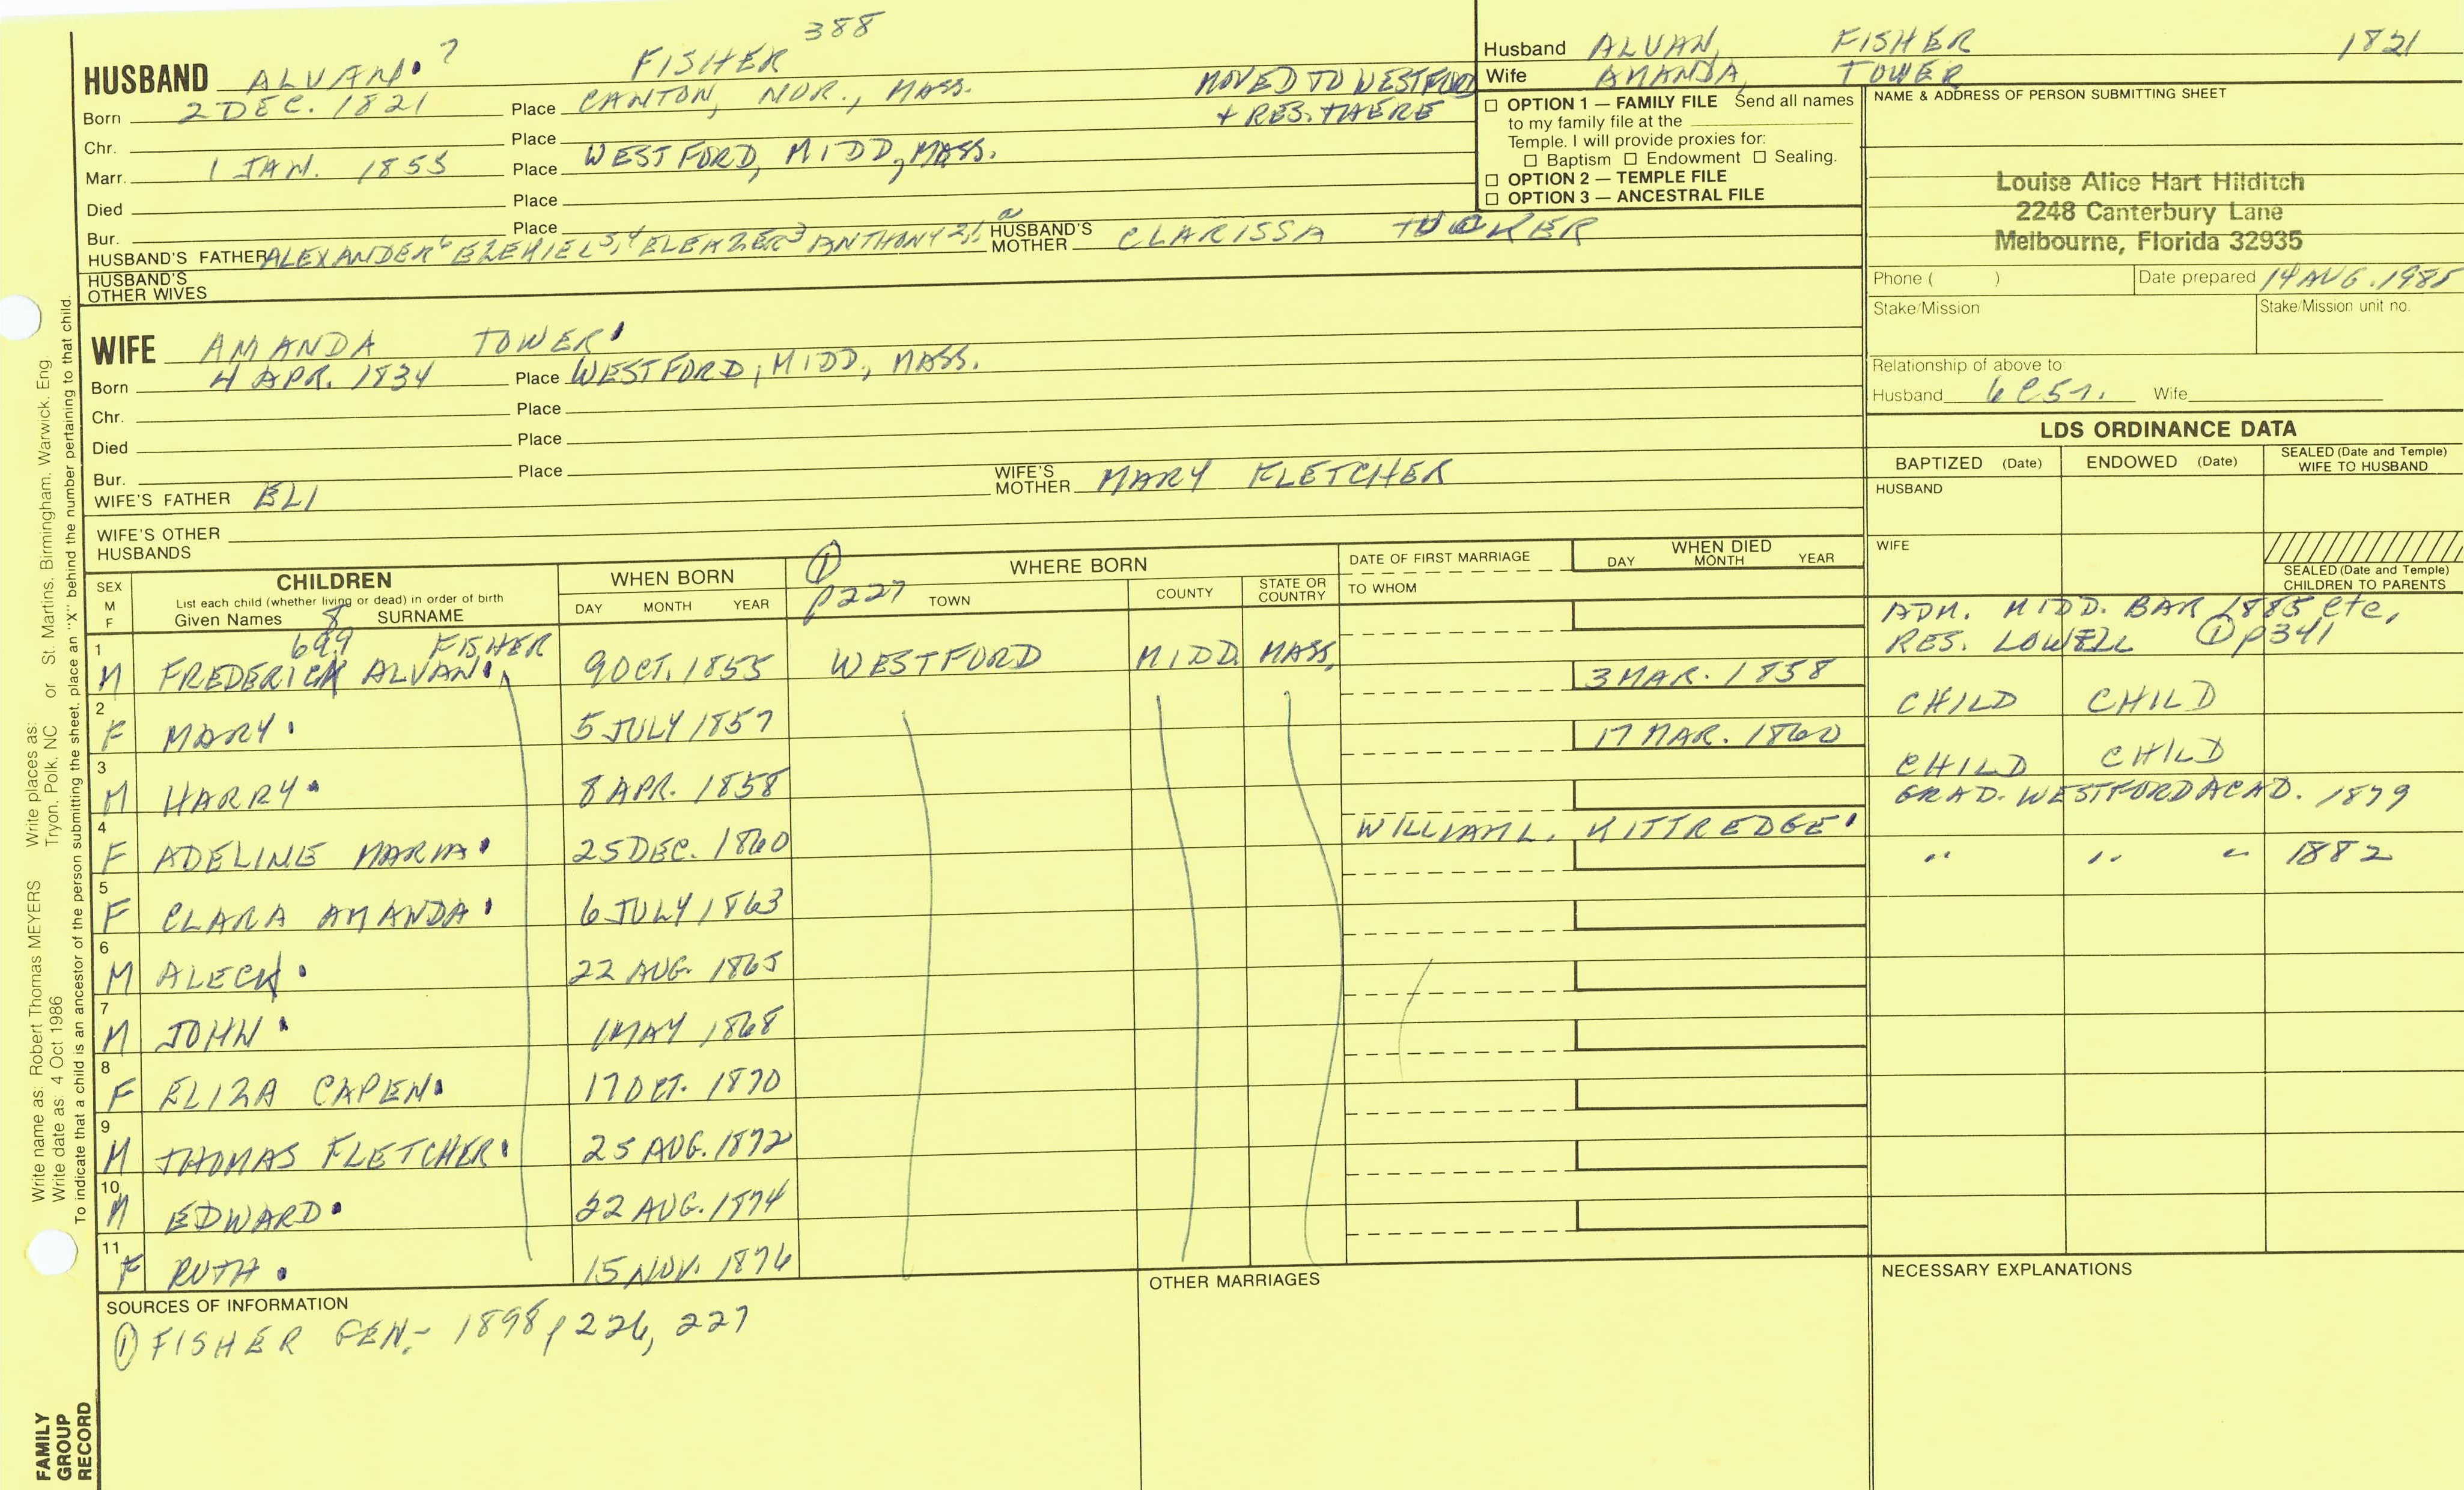 388
HUSBAND ALVAN 7 FISHER
Born 2 DEC. 1821 Place CANTON, NOR., MASS.
MOVED TO WESTFORD
+ RES. THERE
Chr. Place
Marr. 1 JAN. 1855 Place WESTFORD, MIDD, MASS.
Died Place
Bur. Place
HUSBAND'S FATHER ALEXANDER6 EZEKIEL5,4 ELEAZER3 ANTHONY2,1 HUSBAND'S MOTHER CLARISSA TUCKER
HUSBAND'S OTHER WIVES
WIFE AMANDA TOWER
Born 4 APR. 1834 Place WESTFORD, MIDD., MASS.
Chr. Place
Died Place
Bur. Place
WIFE'S FATHER ELI WIFE'S MOTHER MARY FLETCHER
WIFE'S OTHER HUSBANDS
Husband ALVAN, FISHER 1821
Wife AMANDA, TOWER
☐ OPTION 1 — FAMILY FILE Send all names
to my family file at the
Temple. I will provide proxies for:
☐ Baptism ☐ Endowment ☐ Sealing.
☐ OPTION 2 — TEMPLE FILE
☐ OPTION 3 — ANCESTRAL FILE
NAME & ADDRESS OF PERSON SUBMITTING SHEET
Louise Alice Hart Hilditch
2248 Canterbury Lane
Melbourne, Florida 32935
Phone ( ) Date prepared 14 AUG. 1985
Stake/Mission Stake/Mission unit no.
Relationship of above to:
Husband 6C5r. Wife
LDS ORDINANCE DATA
BAPTIZED (Date) ENDOWED (Date) SEALED (Date and Temple) WIFE TO HUSBAND
HUSBAND
WIFE
SEALED (Date and Temple)
CHILDREN TO PARENTS
SEX M F
CHILDREN
List each child (whether living or dead) in order of birth
Given Names 8 SURNAME
WHEN BORN
DAY MONTH YEAR
① p227
WHERE BORN
TOWN COUNTY STATE OR COUNTRY
DATE OF FIRST MARRIAGE
TO WHOM
WHEN DIED
DAY MONTH YEAR
699 FISHER
1 M FREDERICK ALVAN 9 OCT. 1855 WESTFORD MIDD. MASS.
ADM. MIDD. BAR 1885 etc,
RES. LOWELL ① p341
2 F MARY 5 JULY 1857 3 MAR. 1858 CHILD CHILD
3 M HARRY 8 APR. 1858 17 MAR. 1860 CHILD CHILD
4 F ADELINE MARIA 25 DEC. 1860 WILLIAM L. KITTREDGE GRAD. WESTFORD ACAD. 1879
5 F CLARA AMANDA 6 JULY 1863 " " " 1882
6 M ALECK 22 AUG. 1865
7 M JOHN 1 MAY 1868
8 F ELIZA CAPEN 17 OCT. 1870
9 M THOMAS FLETCHER 25 AUG. 1872
10 M EDWARD 22 AUG. 1874
11 F RUTH 15 NOV. 1876
SOURCES OF INFORMATION
① FISHER GEN. 1898 p 226, 227
OTHER MARRIAGES
NECESSARY EXPLANATIONS
Write name as: Robert Thomas MEYERS Write places as:
Write date as: 4 Oct 1986 Tryon, Polk, NC or St. Martins, Birmingham, Warwick, Eng
To indicate that a child is an ancestor of the person submitting the sheet, place an "X" behind the number pertaining to that child.
FAMILY
GROUP
RECORD